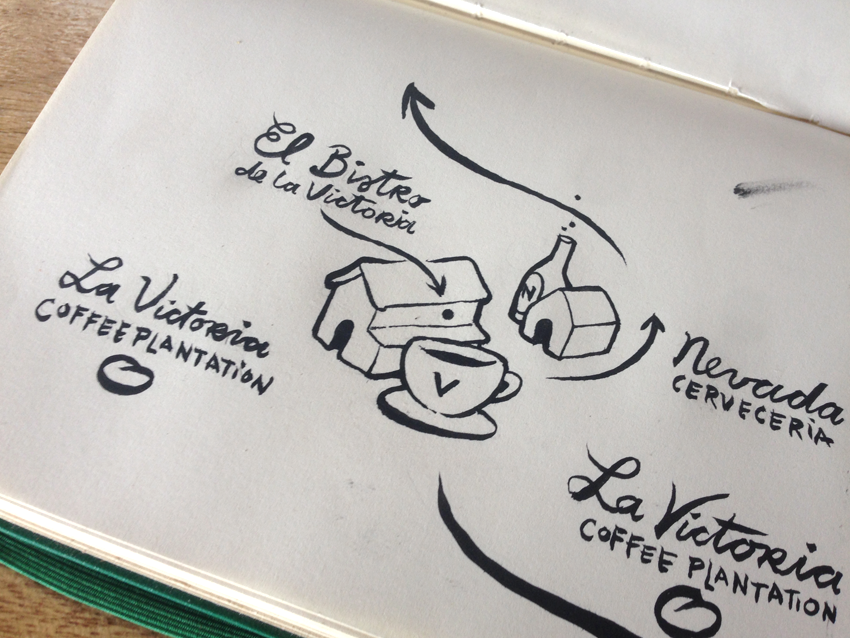 El Bistro
de la Victoria
La Victoria
COFFEE PLANTATION
N
V
Nevada
CERVECERíA
La Victoria
COFFEE PLANTATION